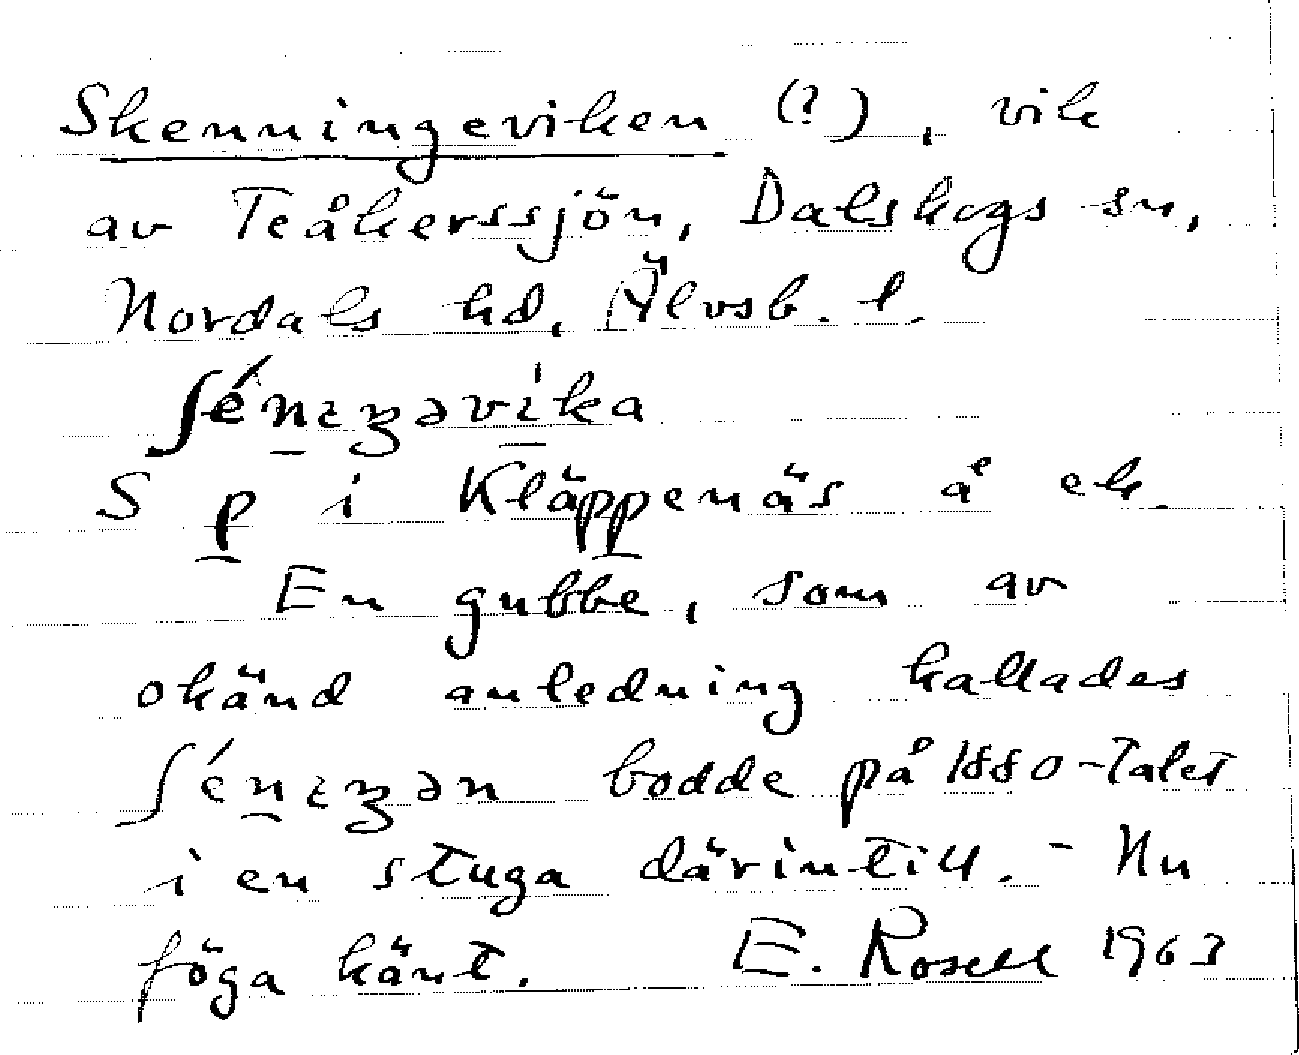 Skenningeviken (?), vik
av Teåkerssjön, Dalskogs sn,
Nordals hd, Älvsb. l.
ʃénıʒəvı̍ka
S p i Kläppenäs å ek.
En gubbe, som av
okänd anledning kallades
ʃénıʒən bodde på 1880-talet
i en stuga därintill. - Nu
föga känt. E. Rosell 1963